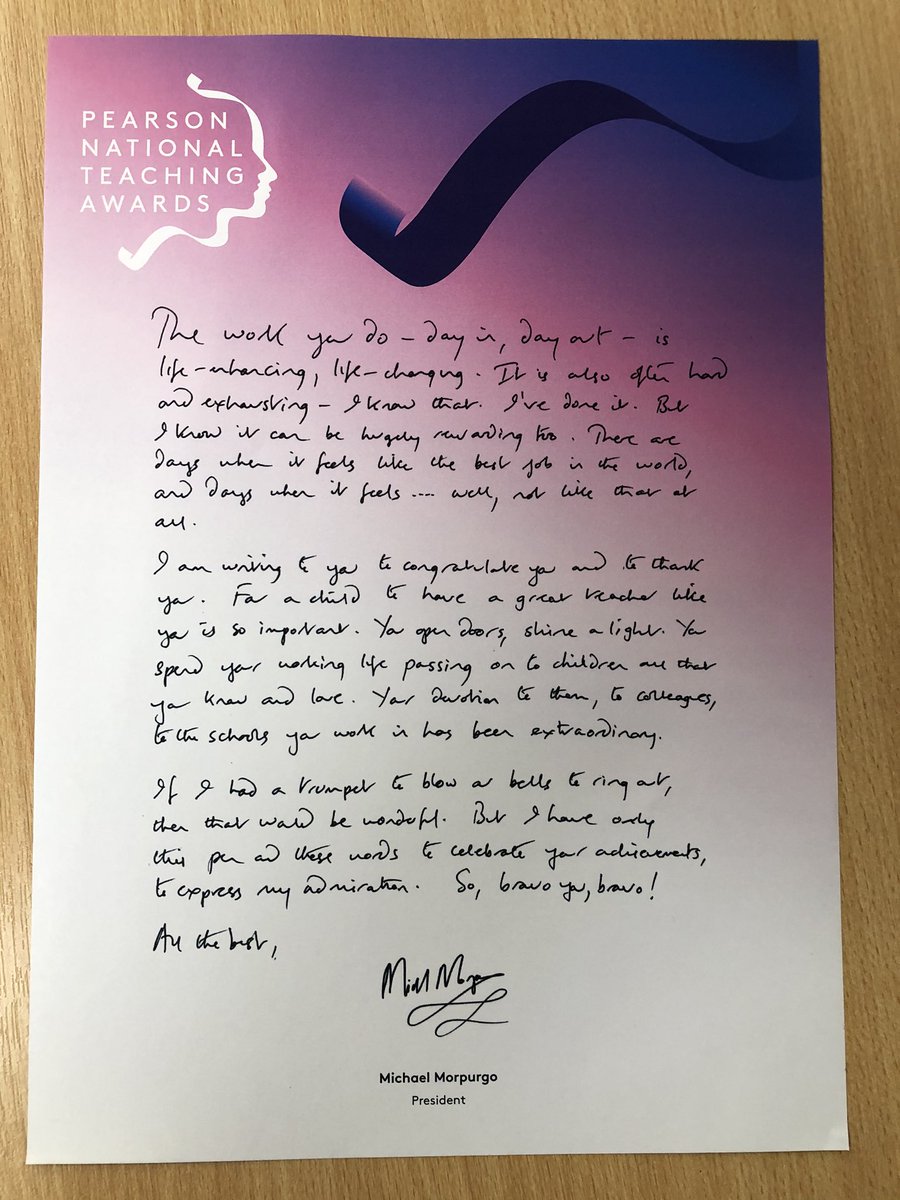 PEARSON
NATIONAL
TEACHING
AWARDS
The work you do – day in, day out – is
life-enhancing, life-changing. It is also often hard
and exhausting – I know that. I've done it. But
I know it can be hugely rewarding too. There are
days when it feels like the best job in the world,
and days when it feels .... well, not like that at
all.
I am writing to you to congratulate you and to thank
you. For a child to have a great teacher like
you is so important. You open doors, shine a light. You
spend your working life passing on to children all that
you know and love. Your devotion to them, to colleagues,
to the schools you work in has been extraordinary.
If I had a trumpet to blow or bells to ring out,
then that would be wonderful. But I have only
this pen and these words to celebrate your achievements,
to express my admiration. So, bravo you, bravo!
All the best,
Michael Morpurgo
Michael Morpurgo
President